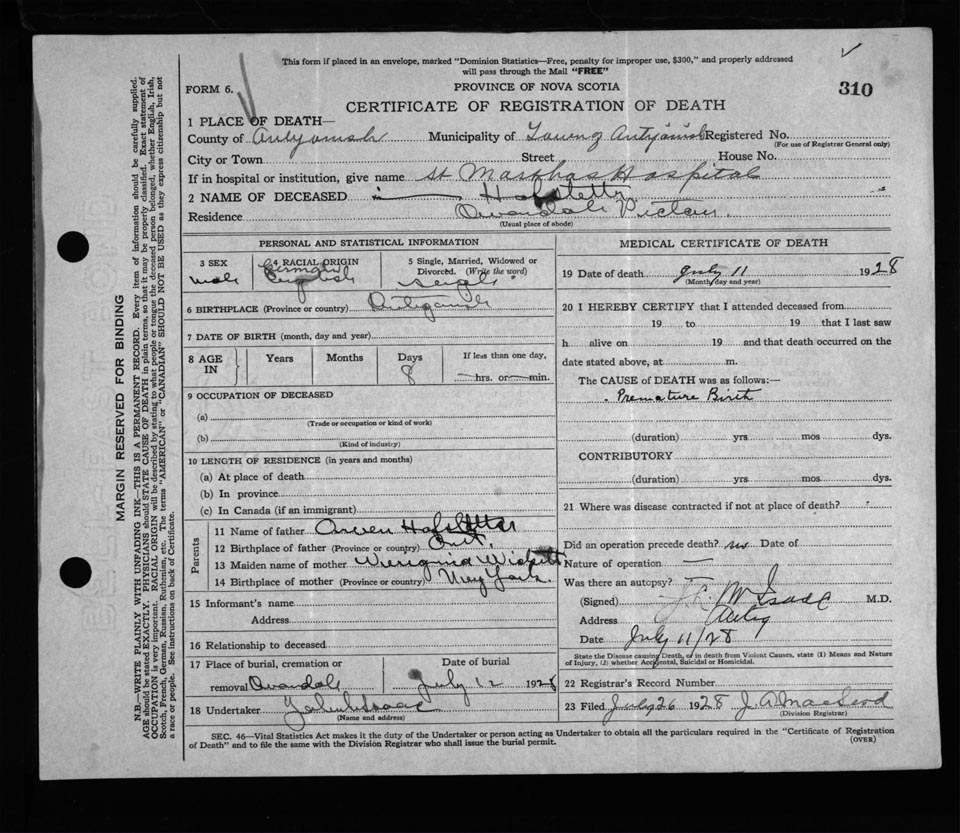 This form if placed in an envelope, marked "Dominion Statistics—Free, penalty for improper use, $300," and properly addressed
will pass through the Mail "FREE"
FORM 6.
PROVINCE OF NOVA SCOTIA
310
CERTIFICATE OF REGISTRATION OF DEATH
1 PLACE OF DEATH—
County of Antigonish Municipality of Antigonish Registered No.
(For use of Registrar General only)
City or Town Street House No.
If in hospital or institution, give name St Marthas Hospital
2 NAME OF DECEASED Hofstetter
Residence Avondale Pictou.
(Usual place of abode)
PERSONAL AND STATISTICAL INFORMATION
3 SEX male
4 RACIAL ORIGIN German English
5 Single, Married, Widowed or Divorced. (Write the word) single
6 BIRTHPLACE (Province or country) Antigonish
7 DATE OF BIRTH (month, day and year)
8 AGE IN Years Months Days 8 If less than one day, hrs. or min.
9 OCCUPATION OF DECEASED
(a)
(Trade or occupation or kind of work)
(b)
(Kind of industry)
10 LENGTH OF RESIDENCE (in years and months)
(a) At place of death
(b) In province
(c) In Canada (if an immigrant)
Parents
11 Name of father Owen Hofstetter
12 Birthplace of father (Province or country) Ont.
13 Maiden name of mother
14 Birthplace of mother (Province or country) New York.
15 Informant's name
Address
16 Relationship to deceased
17 Place of burial, cremation or removal Avondale Date of burial July 12 1928
18 Undertaker
(Name and address)
MEDICAL CERTIFICATE OF DEATH
19 Date of death July 11 1928
(Month, day and year)
20 I HEREBY CERTIFY that I attended deceased from
19 to 19 that I last saw
h alive on 19 and that death occurred on the
date stated above, at m.
The CAUSE of DEATH was as follows:—
Premature Birth
(duration) yrs mos dys.
CONTRIBUTORY
(duration) yrs mos dys.
21 Where was disease contracted if not at place of death?
Did an operation precede death? no Date of
Nature of operation —
Was there an autopsy?
(Signed) McIsaac M.D.
Address Antig
Date July 11/28
State the Disease causing Death, or in death from Violent Causes, state (1) Means and Nature
of Injury, (2) whether Accidental, Suicidal or Homicidal.
22 Registrar's Record Number
23 Filed July 26 1928 J. A. MacLeod
(Division Registrar)
SEC. 46—Vital Statistics Act makes it the duty of the Undertaker or person acting as Undertaker to obtain all the particulars required in the "Certificate of Registration
of Death" and to file the same with the Division Registrar who shall issue the burial permit.
(OVER)
MARGIN RESERVED FOR BINDING
N.B.—WRITE PLAINLY WITH UNFADING INK—THIS IS A PERMANENT RECORD. Every item of information should be carefully supplied.
AGE should be stated EXACTLY. PHYSICIANS should STATE CAUSE OF DEATH in plain terms, so that it may be properly classified. Exact statement of
OCCUPATION is very important. RACIAL ORIGIN will be described by stating to what people or tongue the deceased person belonged, whether English, Irish,
Scotch, French, German, Russian, Ruthenian, etc. The terms "AMERICAN" or "CANADIAN" SHOULD NOT BE USED as they express citizenship but not
a race or people. See instructions on back of Certificate.